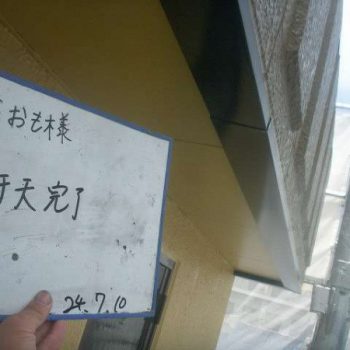 おも様
天完了
24.7.10